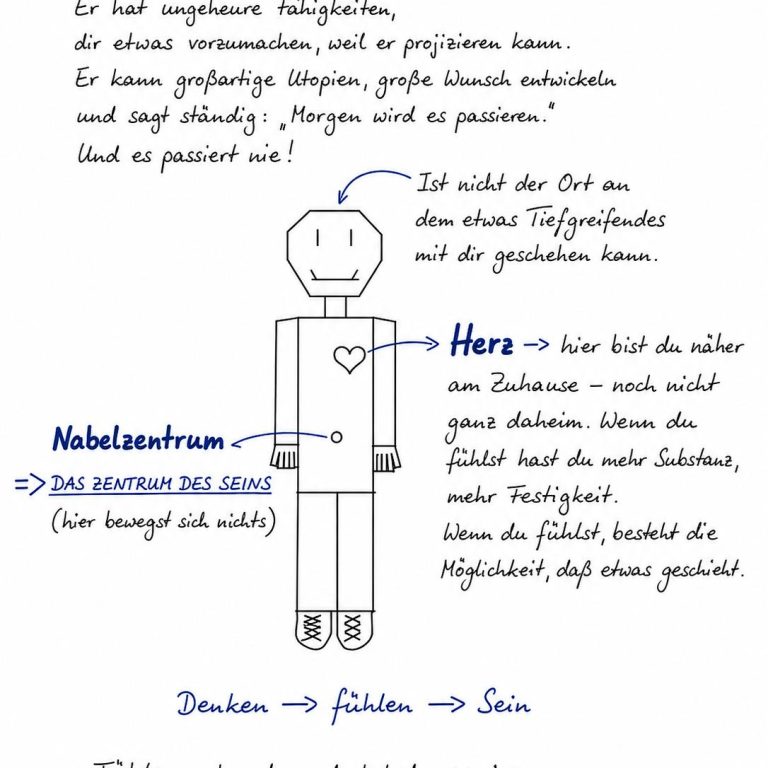 Er hat ungeheure Fähigkeiten,
dir etwas vorzumachen, weil er projizieren kann.
Er kann großartige Utopien, große Wunsch entwickeln
und sagt ständig: „Morgen wird es passieren.“
Und es passiert nie!
Ist nicht der Ort an
dem etwas Tiefgreifendes
mit dir geschehen kann.
Herz → hier bist du näher
am Zuhause – noch nicht
ganz daheim. Wenn du
fühlst hast du mehr Substanz,
mehr Festigkeit.
Wenn du fühlst, besteht die
Möglichkeit, daß etwas geschieht.
Nabelzentrum
=> DAS ZENTRUM DES SEINS
(hier bewegst sich nichts)
Denken → fühlen → Sein